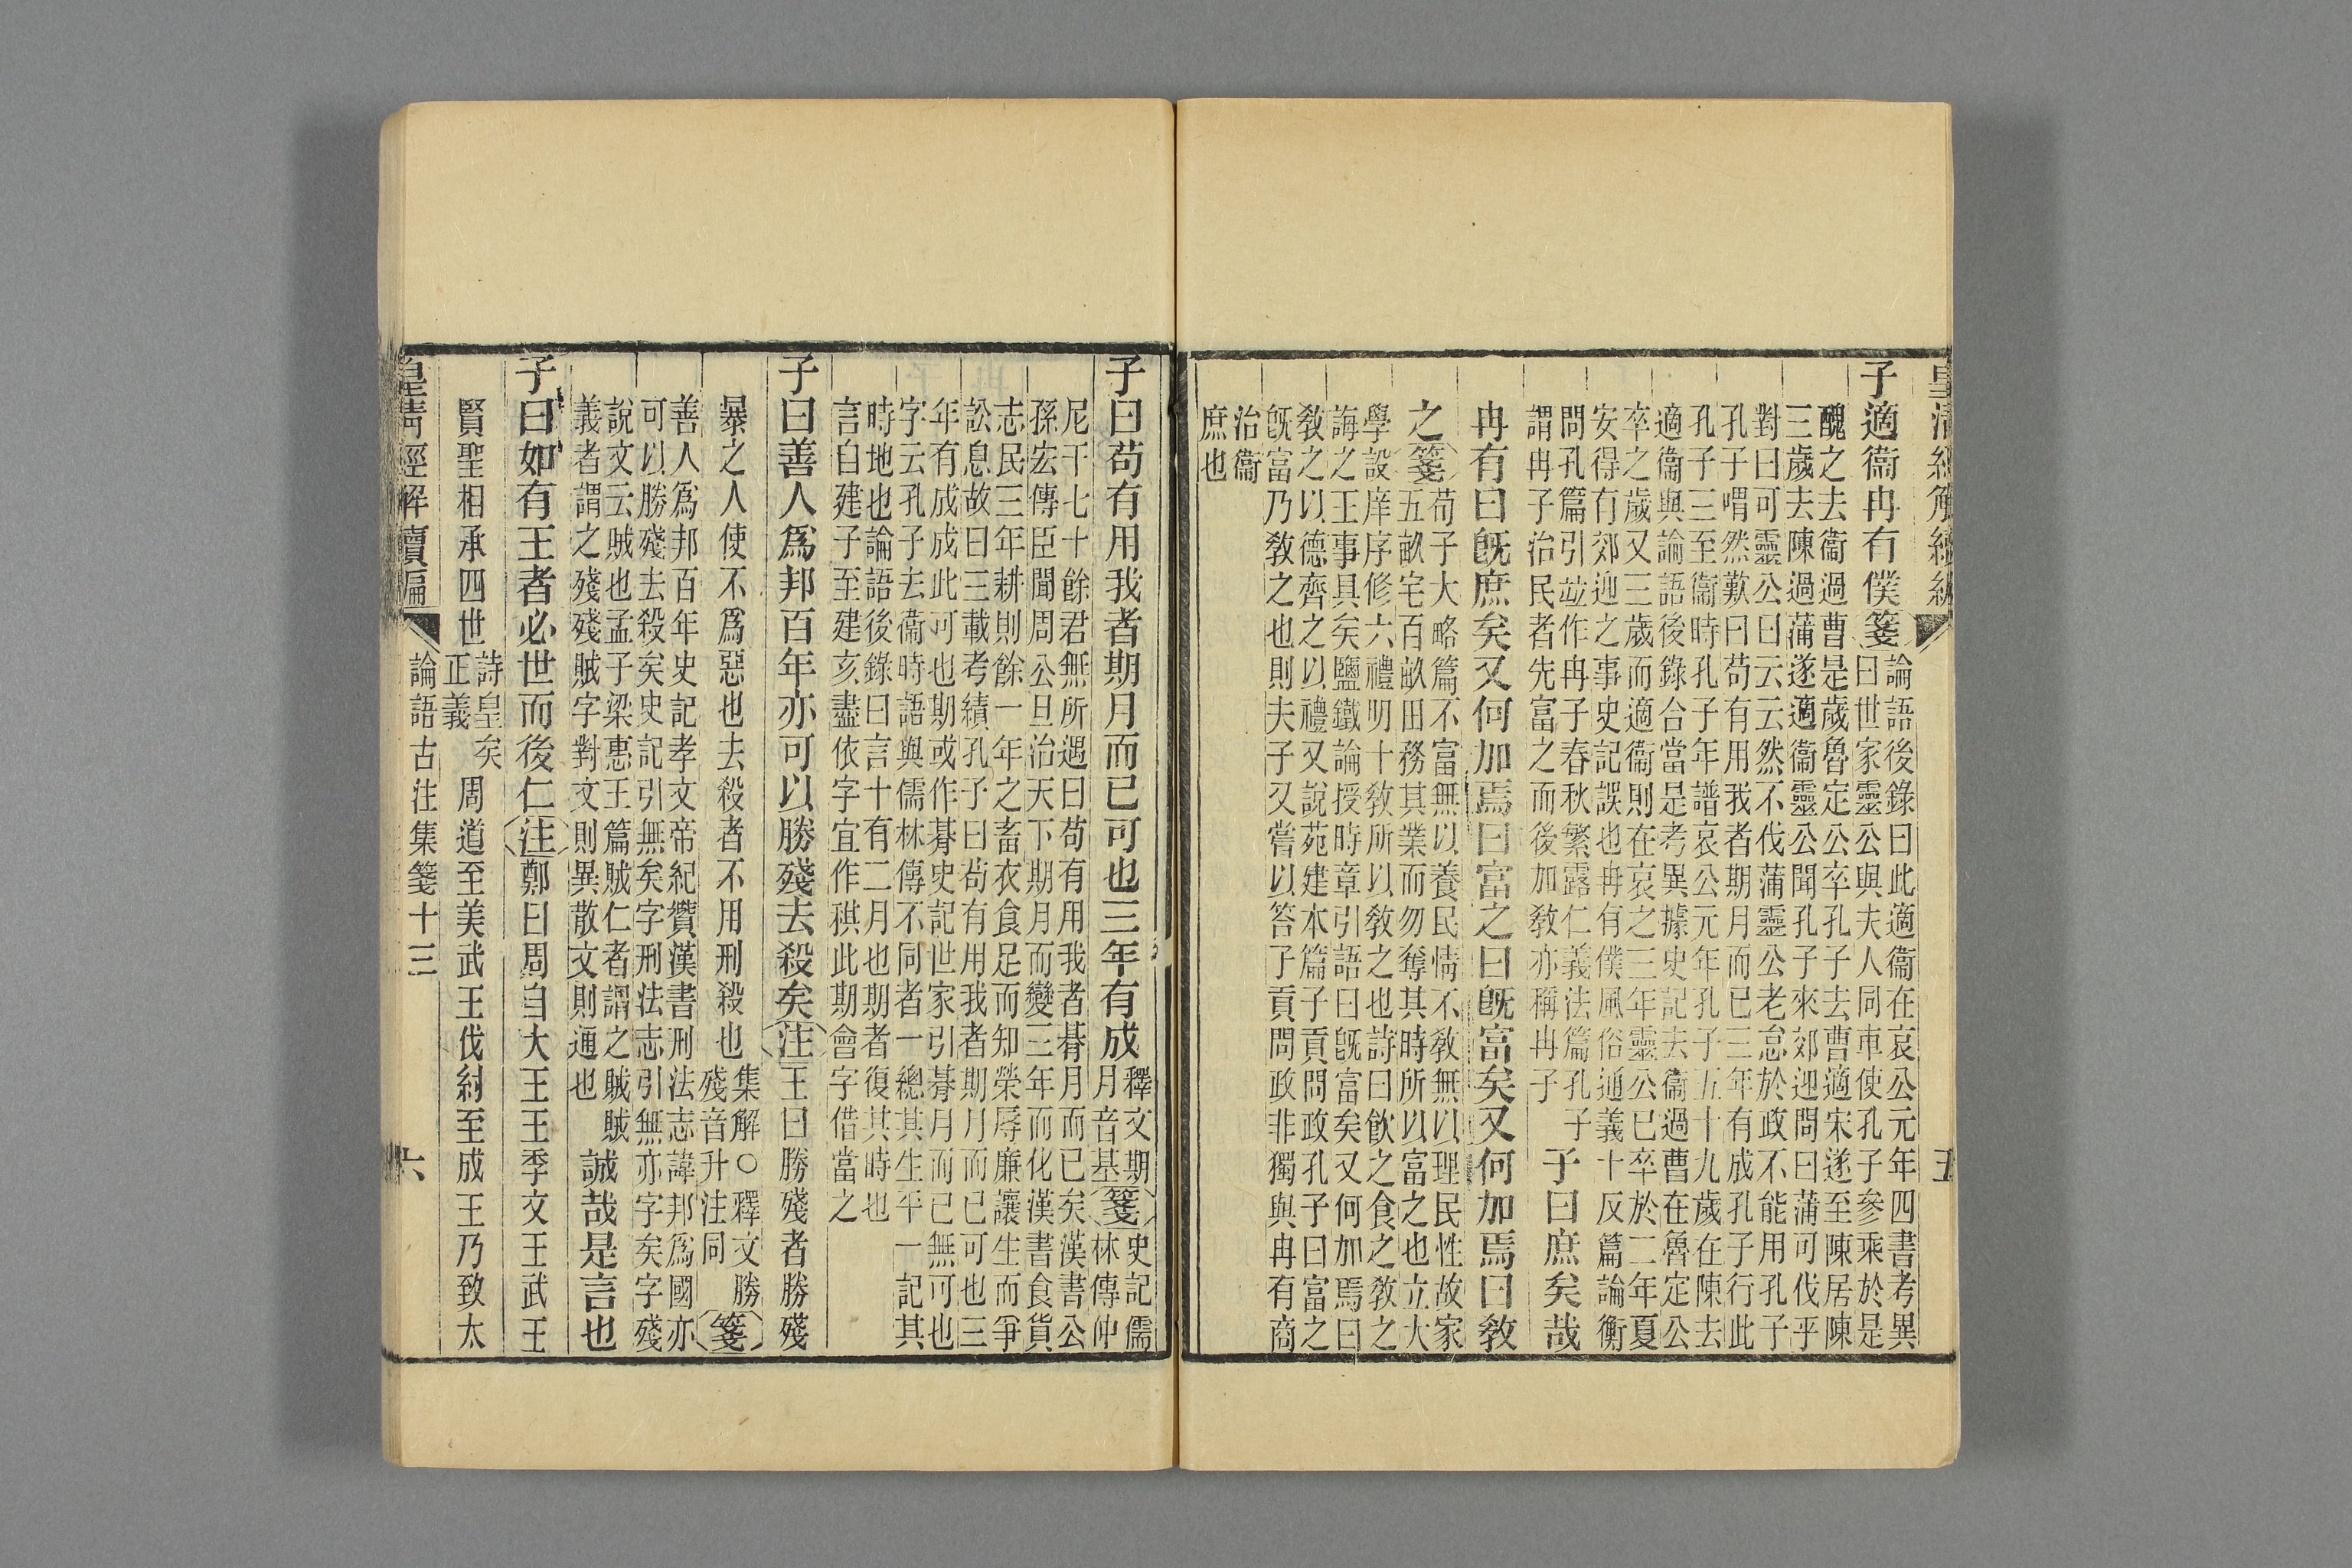 皇清經解續編
五
子適衞冉有僕箋
論語後錄曰此適衞在哀公元年四書考異
曰世家靈公與夫人同車使孔子參乘於是
醜之去衞過曹是歲魯定公卒孔子去曹適宋遂至陳居陳
三歲去陳過蒲遂適衞靈公聞孔子來郊迎問曰蒲可伐乎
對曰可靈公曰云云然不伐蒲靈公老怠於政不能用孔子
孔子喟然歎曰苟有用我者期月而已三年有成孔子行此
孔子三至衞時孔子年譜哀公元年孔子五十九歲在陳去
適衞與論語後錄合當是考異據史記去衞過曹在魯定公
卒之歲又三歲而適衞則在哀之三年靈公已卒於二年夏
安得有郊迎之事史記誤也冉有僕風俗通義十反篇論衡
問孔篇引竝作冉子春秋繁露仁義法篇孔子
謂冉子治民者先富之而後加敎亦稱冉子
子曰庶矣哉
冉有曰旣庶矣又何加焉曰富之曰旣富矣又何加焉曰敎
之箋
荀子大略篇不富無以養民情不敎無以理民性故家
五畝宅百畝田務其業而勿奪其時所以富之也立大
學設庠序修六禮明十敎所以敎之也詩曰飮之食之敎之
誨之王事具矣鹽鐵論授時章引語曰旣富矣又何加焉曰
敎之以德齊之以禮又說苑建本篇子貢問政孔子曰富之
旣富乃敎之也則夫子又嘗以答子貢問政非獨與冉有商
治衞
庶也
子曰苟有用我者期月而已可也三年有成
釋文期
月音基
箋
史記儒
林傳仲
尼干七十餘君無所遇曰苟有用我者朞月而已矣漢書公
孫宏傳臣聞周公旦治天下期月而變三年而化漢書食貨
志民三年耕則餘一年之畜衣食足而知榮辱廉讓生而爭
訟息故曰三載考績孔子曰苟有用我者期月而已可也三
年有成成此可也期或作朞史記世家引朞月而已無可也
字云孔子去衞時語與儒林傳不同者一總其生平一記其
時地也論語後錄曰言十有二月也期者復其時也
言自建子至建亥盡依字宜作稘此期會字借當之
子曰善人爲邦百年亦可以勝殘去殺矣注王曰勝殘者勝殘
暴之人使不爲惡也去殺者不用刑殺也
集解○釋文勝
殘音升注同
箋
善人爲邦百年史記孝文帝紀贊漢書刑法志諱邦爲國亦
可以勝殘去殺矣史記引無矣字刑法志引無亦字矣字殘
說文云賊也孟子梁惠王篇賊仁者謂之賊賊
義者謂之殘殘賊字對文則異散文則通也
誠哉是言也
子曰如有王者必世而後仁注鄭曰周自大王王季文王武王
賢聖相承四世
詩皇矣
正義
周道至美武王伐紂至成王乃致太
皇淸經解續編
論語古注集箋十三
六